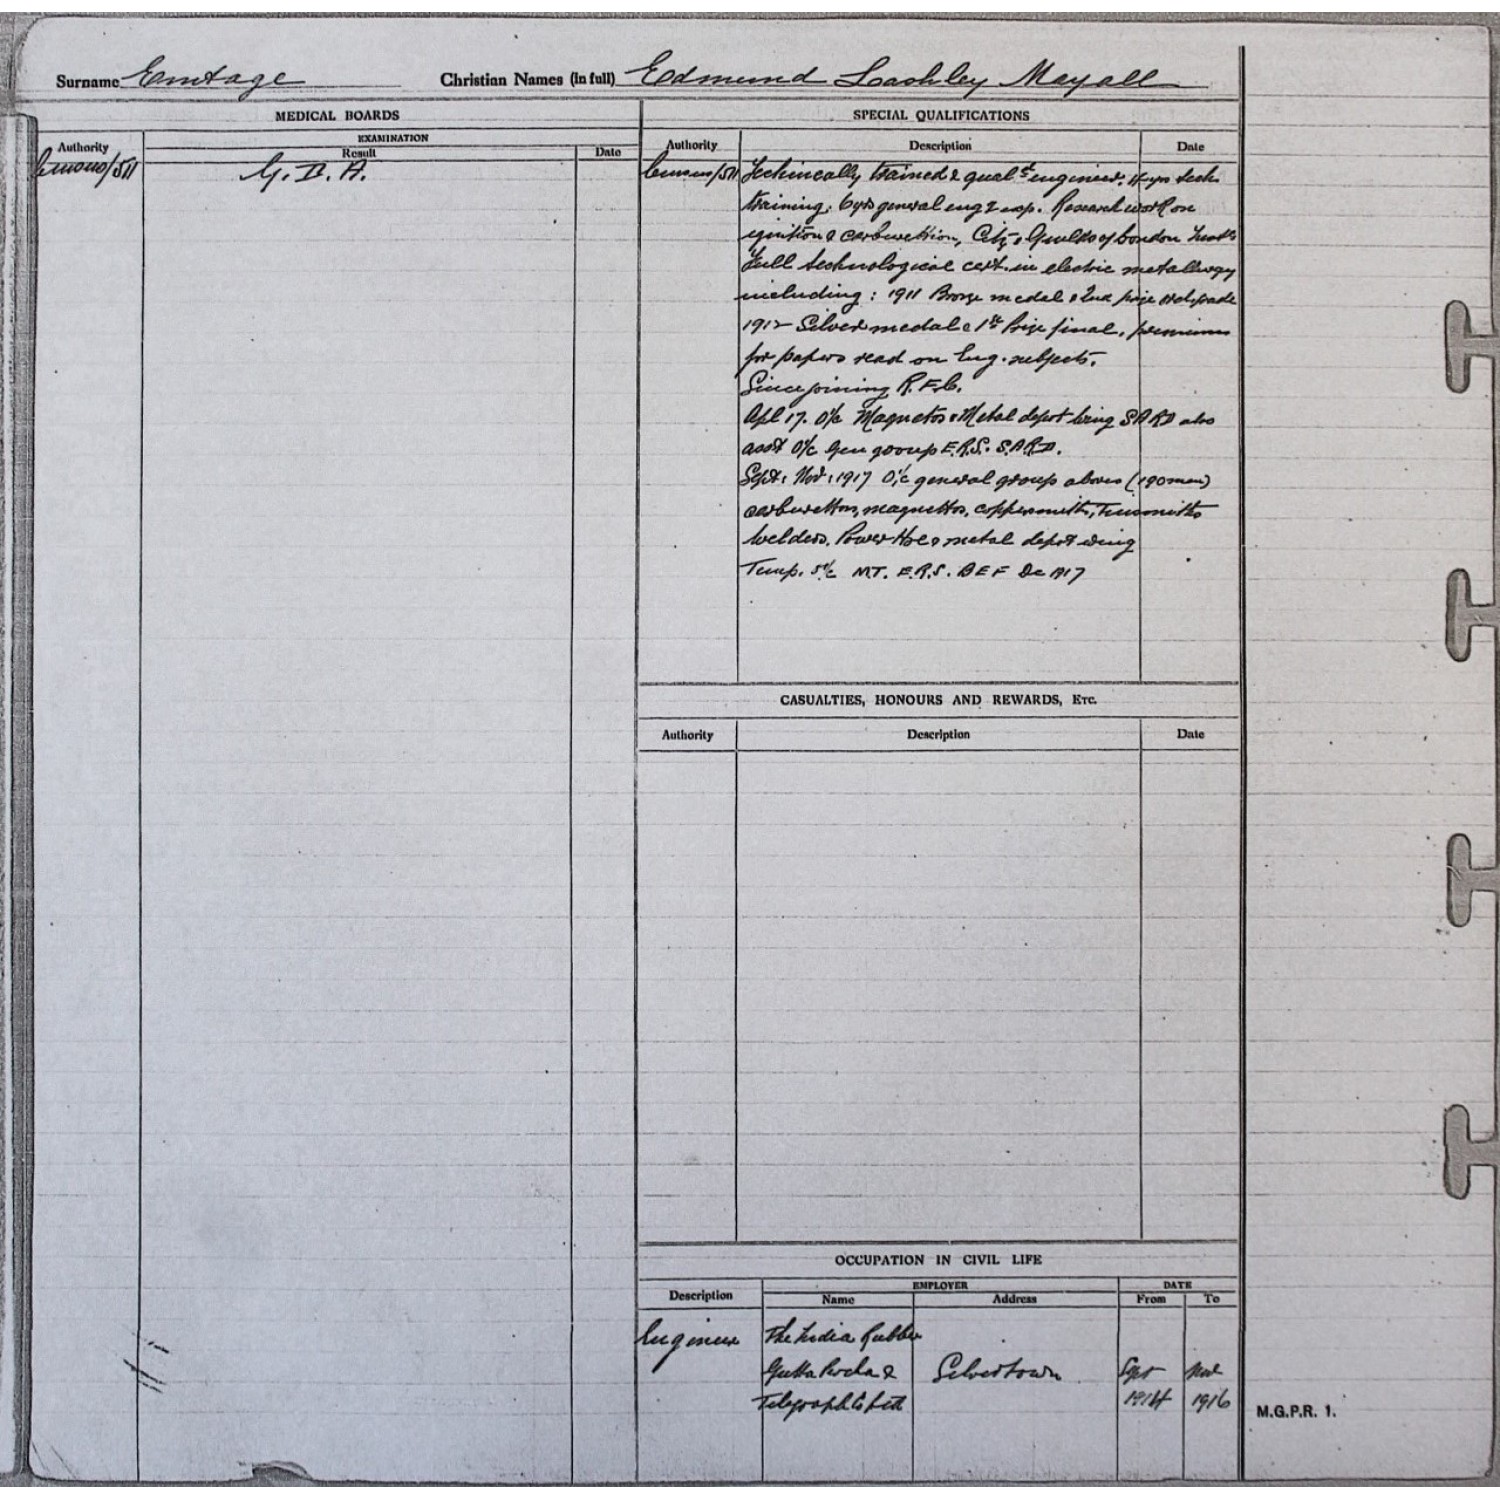 Surname Emtage Christian Names (in full) Edmund Lashley Mayall
MEDICAL BOARDS
Authority
EXAMINATION
Result
Date
/511
G. D. A.
SPECIAL QUALIFICATIONS
Authority
Description
Date
/511
Technically trained & qual. engineer. 4 yrs tech
training. 6 yrs general eng exp. Research work on
ignition & carburettion, City & Guilds of London
Full technological cert. in electric metallurgy
including: 1911 Bronze medal & 2nd prize
1912 Silver medal & 1st Prize final, premiums
for papers read on Eng. subjects.
Since joining R.F.C.
Apl 17. O/c Magnetos & Metal depot being S.A.R.D also
asst O/c Gen group E.R.S. S.A.R.D.
Sept: Nov: 1917 O/c general group above (190 men)
carburettors, magnettos, coppersmiths, Tinsmiths
Welders. Power Hse & metal depot wing
Temp. M.T. E.R.S. BEF Dec 1917
CASUALTIES, HONOURS AND REWARDS, Etc.
Authority
Description
Date
OCCUPATION IN CIVIL LIFE
Description
EMPLOYER
Name
Address
DATE
From
To
Engineer
The India Rubber
Gutta Percha &
Telegraph Co Ltd
Silvertown
Sept
1914
Nov
1916
M.G.P.R. 1.